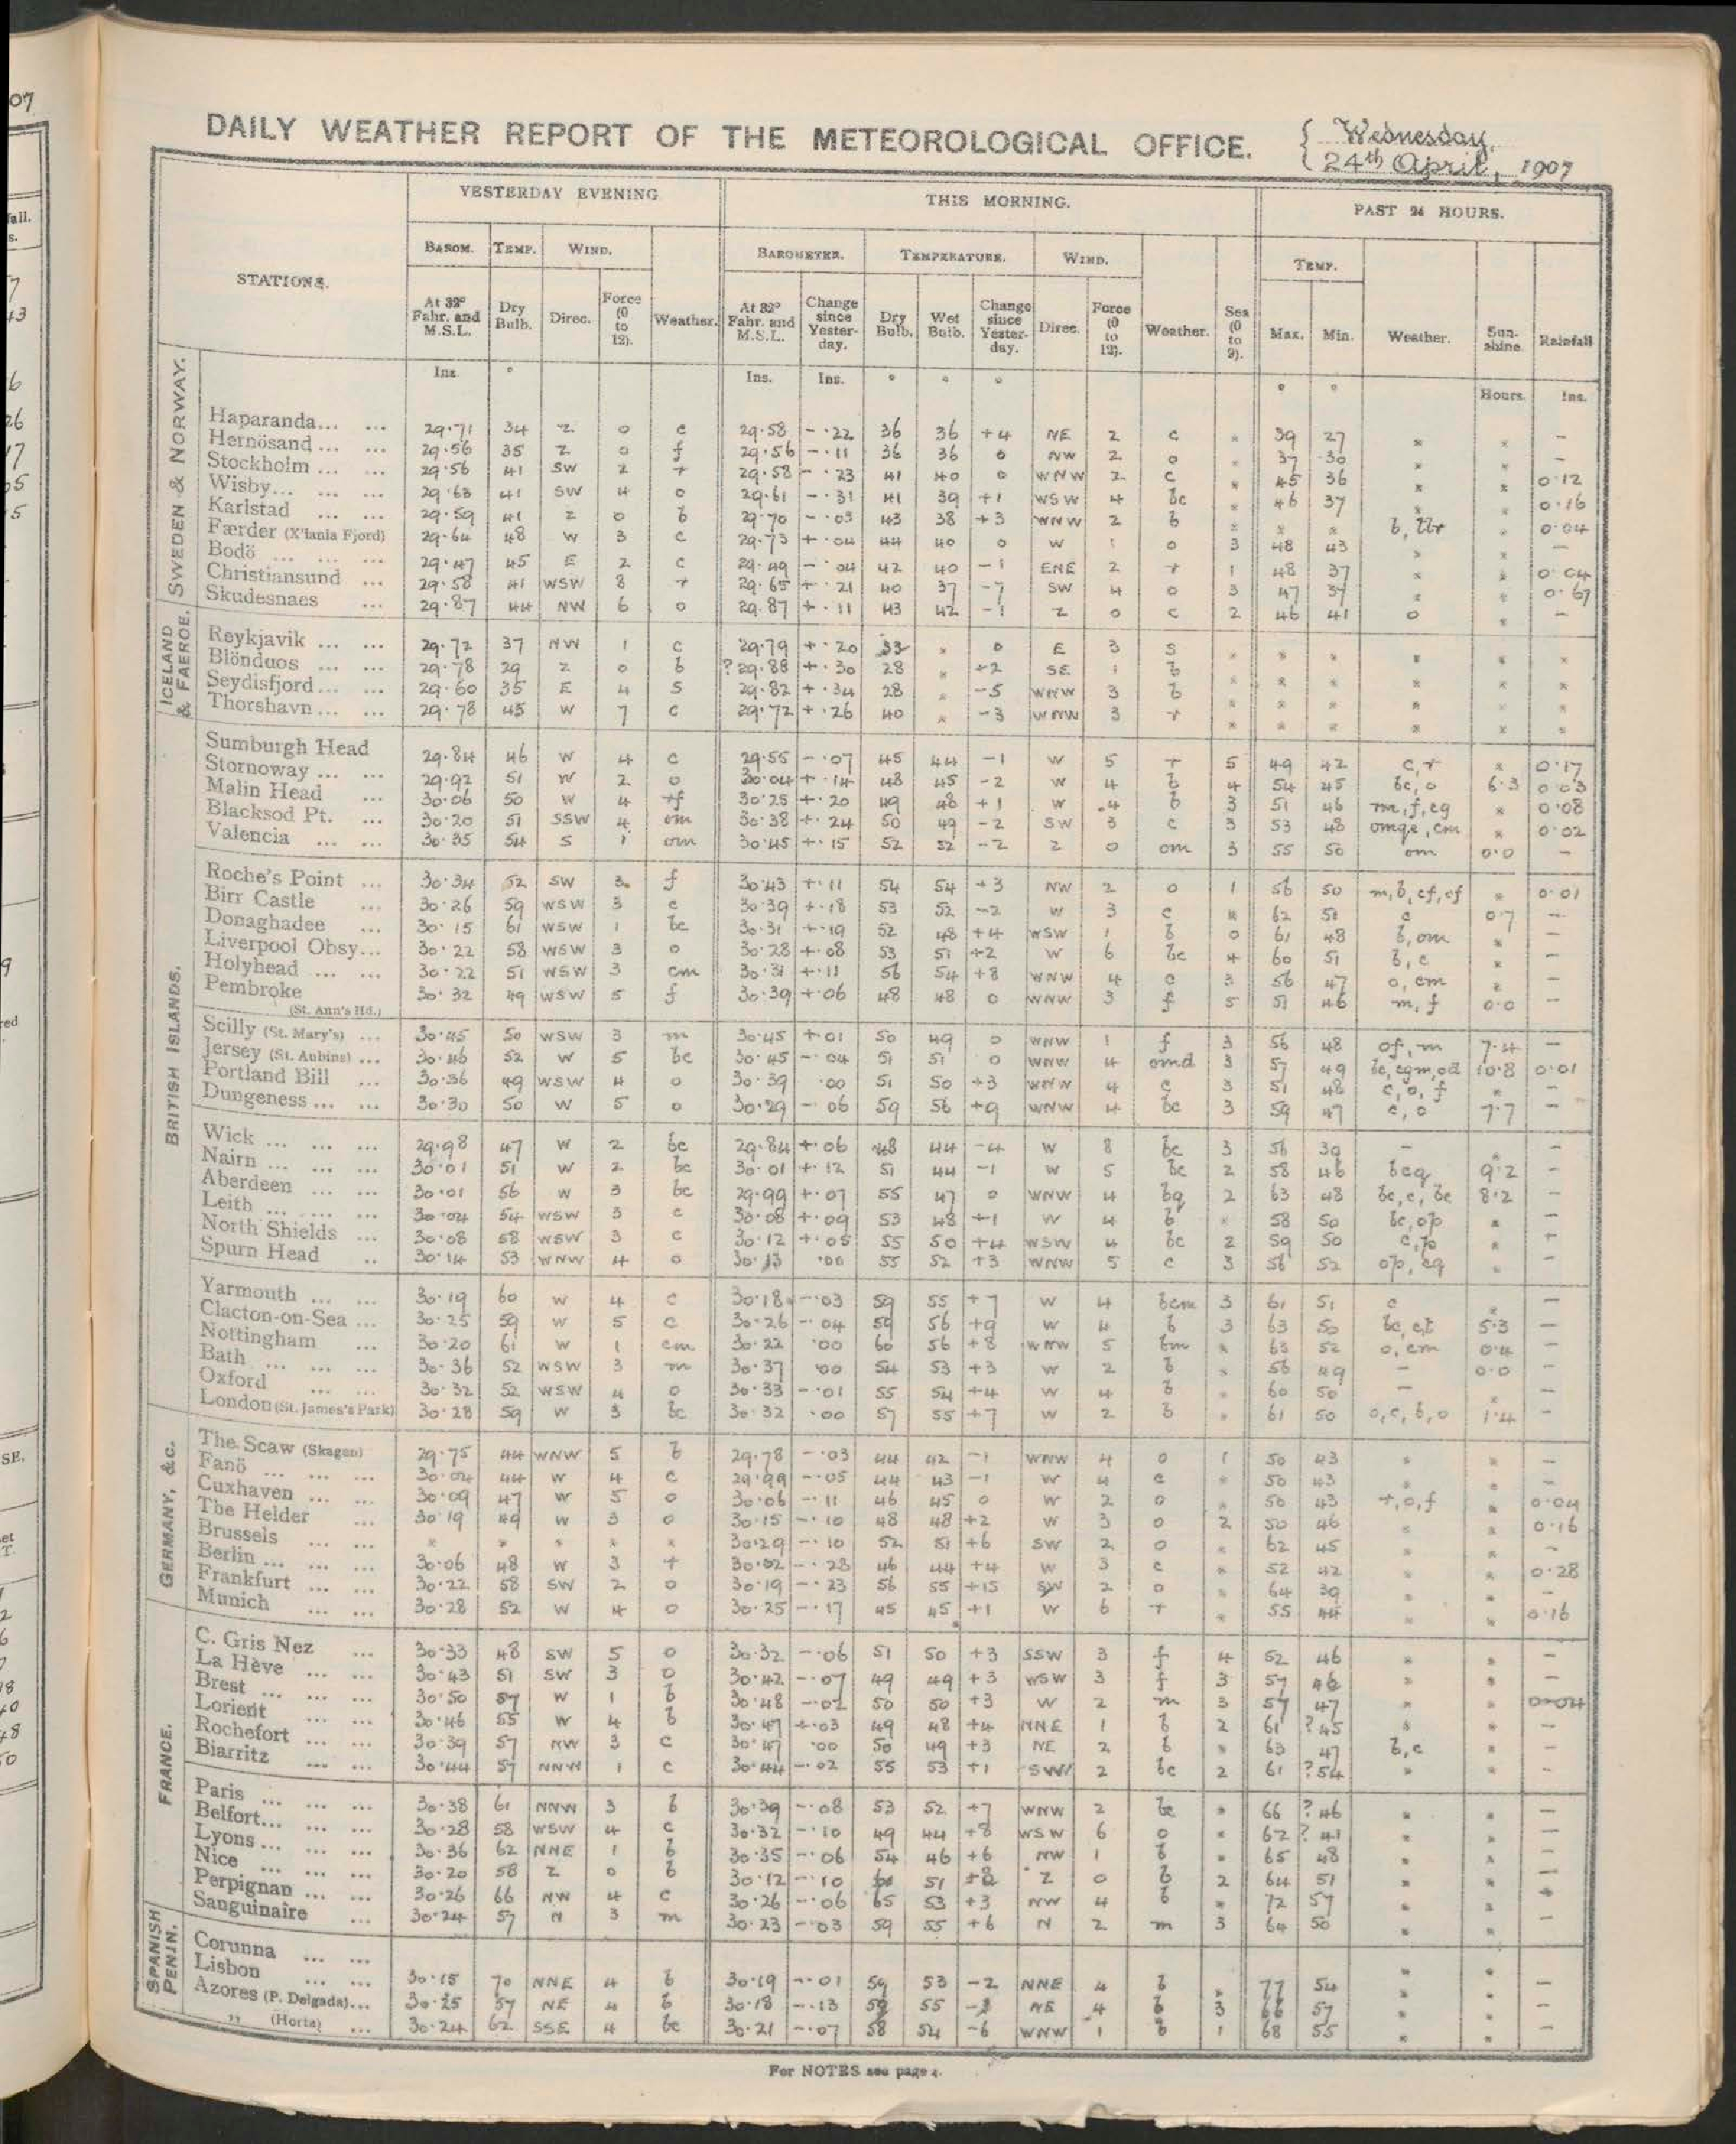 07
DAILY WEATHER REPORT OF THE METEOROLOGICAL OFFICE. { Wednesday, 24th April, 1907
YESTERDAY EVENING THIS MORNING. PAST 24 HOURS.
STATIONS.
BAROM. TEMP. WIND. BAROMETER. TEMPERATURE. WIND. TEMP.
At 32° Fahr. and M.S.L. Dry Bulb. Direc. Force (0 to 12). Weather. At 32° Fahr. and M.S.L. Change since Yesterday. Dry Bulb. Wet Bulb. Change since Yesterday. Direc. Force (0 to 12). Weather. Sea (0 to 9). Max. Min. Weather. Sunshine. Rainfall
Ins. ° Ins. Ins. ° ° ° ° ° Hours. Ins.
SWEDEN & NORWAY.
Haparanda... ... 29.71 34 Z 0 c 29.58 -.22 36 36 +4 NE 2 c * 39 27 * * -
Hernösand ... ... 29.56 35 Z 0 f 29.56 -.11 36 36 0 NW 2 o * 37 30 * * -
Stockholm ... ... 29.56 41 SW 2 r 29.58 -.23 41 40 0 WNW 2 c * 45 36 * * 0.12
Wisby... ... ... 29.63 41 SW 4 o 29.61 -.31 41 39 +1 WSW 4 bc * 46 37 * * 0.16
Karlstad ... ... 29.59 41 Z 0 b 29.70 -.03 43 38 +3 WNW 2 b * * * b, ttr * 0.04
Færder (X'iania Fjord) 29.64 48 W 3 c 29.73 +.04 44 40 0 W 1 o 3 48 43 * * -
Bodö ... ... ... 29.47 45 E 2 c 29.49 -.04 42 40 -1 ENE 2 r 1 48 37 * * 0.04
Christiansund ... 29.58 41 WSW 8 r 29.65 +.21 40 37 -7 SW 4 o 3 47 37 * * 0.67
Skudesnaes ... 29.87 44 NW 6 o 29.87 +.11 43 42 -1 Z 0 c 2 46 41 o * -
ICELAND & FAEROE.
Reykjavik ... ... 29.72 37 NW 1 c 29.79 +.20 33 * 0 E 3 s * * * * * *
Blönduos ... ... 29.78 29 Z 0 b ?29.88 +.30 28 * +2 SE 1 b * * * * * *
Seydisfjord ... ... 29.60 35 E 4 s 29.82 +.34 28 * -5 WNW 3 b * * * * * *
Thorshavn ... ... 29.78 45 W 7 c 29.72 +.26 40 * -3 WNW 3 r * * * * * *
BRITISH ISLANDS.
Sumburgh Head 29.84 46 W 4 c 29.55 -.07 45 44 -1 W 5 r 5 49 42 c, r * 0.17
Stornoway ... ... 29.92 51 W 2 o 30.04 +.14 48 45 -2 W 4 b 4 54 45 bc, o 6.3 0.03
Malin Head ... 30.06 50 W 4 rf 30.25 +.20 49 48 +1 W 4 b 3 51 46 rm, f, cg * 0.08
Blacksod Pt. ... 30.20 51 SSW 4 om 30.38 +.24 50 49 -2 SW 3 c 3 53 48 omqe, cm * 0.02
Valencia ... ... 30.35 54 S 1 om 30.45 +.15 52 52 -2 Z 0 om 3 55 50 om 0.0 -
Roche's Point ... 30.34 52 SW 3 f 30.43 +.11 54 54 +3 NW 2 o 1 56 50 m, b, cf, of * 0.01
Birr Castle ... 30.26 59 WSW 3 c 30.39 +.18 53 52 -2 W 3 c * 62 51 c 0.7 -
Donaghadee ... 30.15 61 WSW 1 bc 30.31 +.19 52 48 +4 WSW 1 b 0 61 48 b, om * -
Liverpool Obsy... 30.22 58 WSW 3 o 30.28 +.08 53 51 +2 W 6 bc 4 60 51 b, c * -
Holyhead ... ... 30.22 51 WSW 3 cm 30.31 +.11 56 54 +8 WNW 4 c 3 56 47 o, cm * -
Pembroke (St. Ann's Hd.) 30.32 49 WSW 5 f 30.39 +.06 48 48 0 WNW 3 f 5 51 46 m, f 0.0 -
Scilly (St. Mary's) ... 30.45 50 WSW 3 m 30.45 +.01 50 49 0 WNW 1 f 3 56 48 of, m 7.4 -
Jersey (St. Aubins) ... 30.46 52 W 5 bc 30.45 -.04 51 51 0 WNW 4 omd 3 57 49 bc, cgm, od 10.8 0.01
Portland Bill ... 30.36 49 WSW 4 o 30.39 .00 51 50 +3 WNW 4 c 3 51 48 c, o, f * -
Dungeness ... ... 30.30 50 W 5 o 30.29 -.06 59 56 +9 WNW 4 bc 3 59 47 c, o 7.7 -
Wick ... ... ... 29.98 47 W 2 bc 29.84 +.06 48 44 -4 W 8 bc 3 56 39 - * -
Nairn ... ... ... 30.01 51 W 2 bc 30.01 +.12 51 44 -1 W 5 bc 2 58 46 bcq 9.2 -
Aberdeen ... ... 30.01 56 W 3 bc 29.99 +.07 55 47 0 WNW 4 bq 2 63 48 bc, c, bc 8.2 -
Leith ... ... ... 30.04 54 WSW 3 c 30.08 +.09 53 48 +1 W 4 b * 58 50 bc, op * -
North Shields ... 30.08 58 WSW 3 c 30.12 +.05 55 50 +4 WSW 4 bc 2 59 50 c, p *
Spurn Head .. 30.14 53 WNW 4 o 30.13 .00 55 52 +3 WNW 5 c 3 56 52 op, cq * -
Yarmouth ... ... 30.19 60 W 4 c 30.18 -.03 59 55 +7 W 4 bcm 3 61 51 c * -
Clacton-on-Sea ... 30.25 59 W 5 c 30.26 -.04 59 56 +9 W 4 b 3 63 50 bc, c, b 5.3 -
Nottingham ... 30.20 61 W 1 cm 30.22 .00 60 56 +8 WNW 5 bm * 63 52 o, cm 0.4 -
Bath ... ... ... 30.36 52 WSW 3 m 30.37 .00 54 53 +3 W 2 b * 56 49 - 0.0 -
Oxford ... ... 30.32 52 WSW 4 o 30.33 -.01 55 54 +4 W 4 b * 60 50 - * -
London (St. James's Park) 30.28 59 W 3 bc 30.32 .00 57 55 +7 W 2 b * 61 50 o, c, b, o 1.4 -
GERMANY, &c.
The Scaw (Skagen) 29.75 44 WNW 5 b 29.78 -.03 44 42 -1 WNW 4 o 1 50 43 * * -
Fanö ... ... ... 30.04 44 W 4 c 29.99 -.05 44 43 -1 W 4 c * 50 43 * * -
Cuxhaven ... ... 30.09 47 W 5 o 30.06 -.11 46 45 0 W 2 o * 50 43 r, o, f * 0.04
The Helder ... 30.19 49 W 3 o 30.15 -.10 48 48 +2 W 3 o 2 50 46 * * 0.16
Brussels ... ... * * * * * 30.29 -.10 52 51 +6 SW 2 o * 62 45 * * -
Berlin ... ... ... 30.06 48 W 3 r 30.02 -.23 46 44 +4 W 3 c * 52 42 * * 0.28
Frankfurt ... ... 30.22 58 SW 2 o 30.19 -.23 56 55 +15 SW 2 o * 64 39 * * -
Munich ... ... 30.28 52 W 4 o 30.25 -.17 45 45 +1 W 6 r * 55 44 * * 0.16
FRANCE.
C. Gris Nez ... 30.33 48 SW 5 o 30.32 -.06 51 50 +3 SSW 3 f 4 52 46 * * -
La Hève ... ... 30.43 51 SW 3 o 30.42 -.07 49 49 +3 WSW 3 f 3 57 46 * * -
Brest ... ... ... 30.50 57 W 1 b 30.48 -.02 50 50 +3 W 2 m 3 57 47 * * 0.04
Lorient ... ... 30.46 55 W 4 b 30.47 +.03 49 48 +4 NNE 1 b 2 61 ?45 * * -
Rochefort ... ... 30.39 57 NW 3 c 30.47 .00 50 49 +3 NE 2 b * 63 47 b, c * -
Biarritz ... ... 30.44 57 NNW 1 c 30.44 -.02 55 53 +1 SW 2 bc 2 61 ?54 * * -
Paris ... ... ... 30.38 61 NNW 3 b 30.39 -.08 53 52 +7 WNW 2 bc * 66 ?46 * * -
Belfort... ... ... 30.28 58 WSW 4 c 30.32 -.10 49 44 +8 WSW 6 o * 62 ?41 * * -
Lyons ... ... ... 30.36 62 NNE 1 b 30.35 -.06 54 46 +6 NW 1 b * 65 48 * * -
Nice ... ... ... 30.20 58 Z 0 b 30.12 -.10 51 Z 0 b 2 64 51 * * -
Perpignan ... ... 30.26 66 NW 4 c 30.26 -.06 65 53 +3 NW 4 b * 72 57 * *
Sanguinaire ... 30.24 57 N 3 m 30.23 -.03 59 55 +6 N 2 m 3 64 50 * * -
SPANISH PENIN.
Corunna ... ...
Lisbon ... ... 30.15 70 NNE 4 b 30.19 -.01 59 53 -2 NNE 4 b * 77 54 * * -
Azores (P. Delgada)... 30.25 57 NE 4 b 30.18 -.13 59 55 NE 4 b 3 66 57 * * -
" (Horta) ... 30.24 62 SSE 4 bc 30.21 -.07 58 54 -6 WNW 1 b 1 68 55 * * -
For NOTES see page 4.